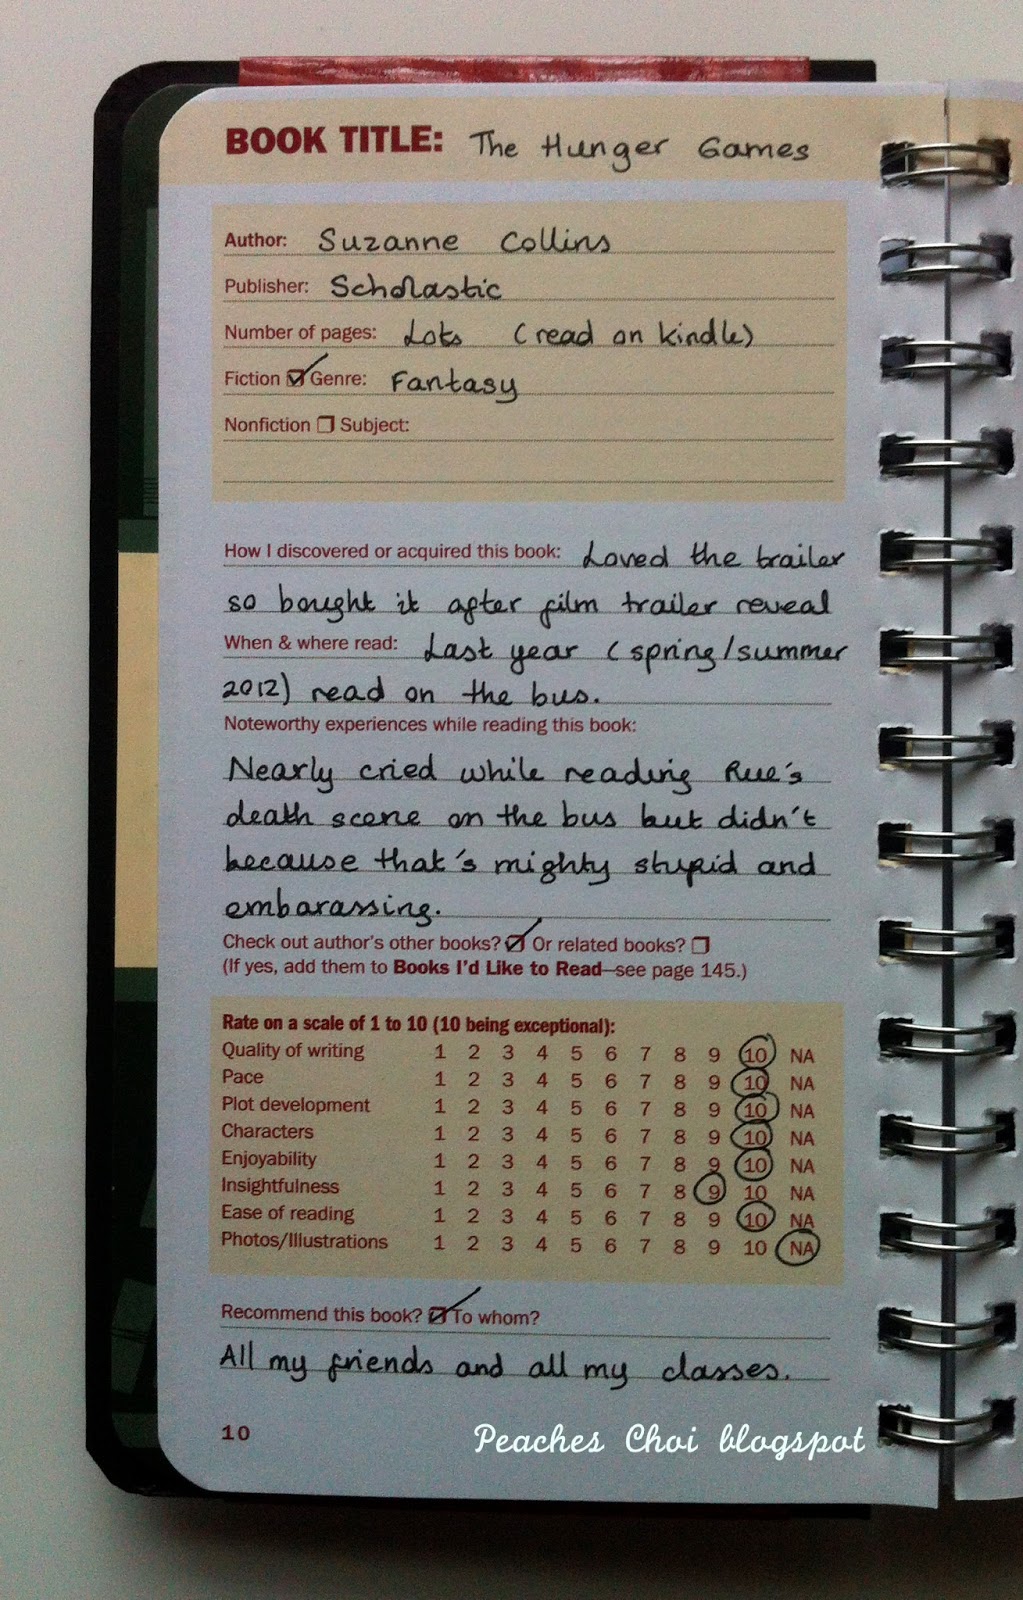 BOOK TITLE: The Hunger Games
Author: Suzanne Collins
Publisher: Scholastic
Number of pages: Lots (read on kindle)
Fiction ☑ Genre: Fantasy
Nonfiction ☐ Subject:
How I discovered or acquired this book: Loved the trailer
so bought it after film trailer reveal
When & where read: Last year (spring/summer
2012) read on the bus.
Noteworthy experiences while reading this book:
Nearly cried while reading Rue's
death scene on the bus but didn't
because that's mighty stupid and
embarassing.
Check out author's other books? ☑ Or related books? ☐
(If yes, add them to Books I'd Like to Read—see page 145.)
Rate on a scale of 1 to 10 (10 being exceptional):
Quality of writing 1 2 3 4 5 6 7 8 9 10 NA
Pace 1 2 3 4 5 6 7 8 9 10 NA
Plot development 1 2 3 4 5 6 7 8 9 10 NA
Characters 1 2 3 4 5 6 7 8 9 10 NA
Enjoyability 1 2 3 4 5 6 7 8 9 10 NA
Insightfulness 1 2 3 4 5 6 7 8 9 10 NA
Ease of reading 1 2 3 4 5 6 7 8 9 10 NA
Photos/Illustrations 1 2 3 4 5 6 7 8 9 10 NA
Recommend this book? ☑ To whom?
All my friends and all my classes.
10
Peaches Choi blogspot